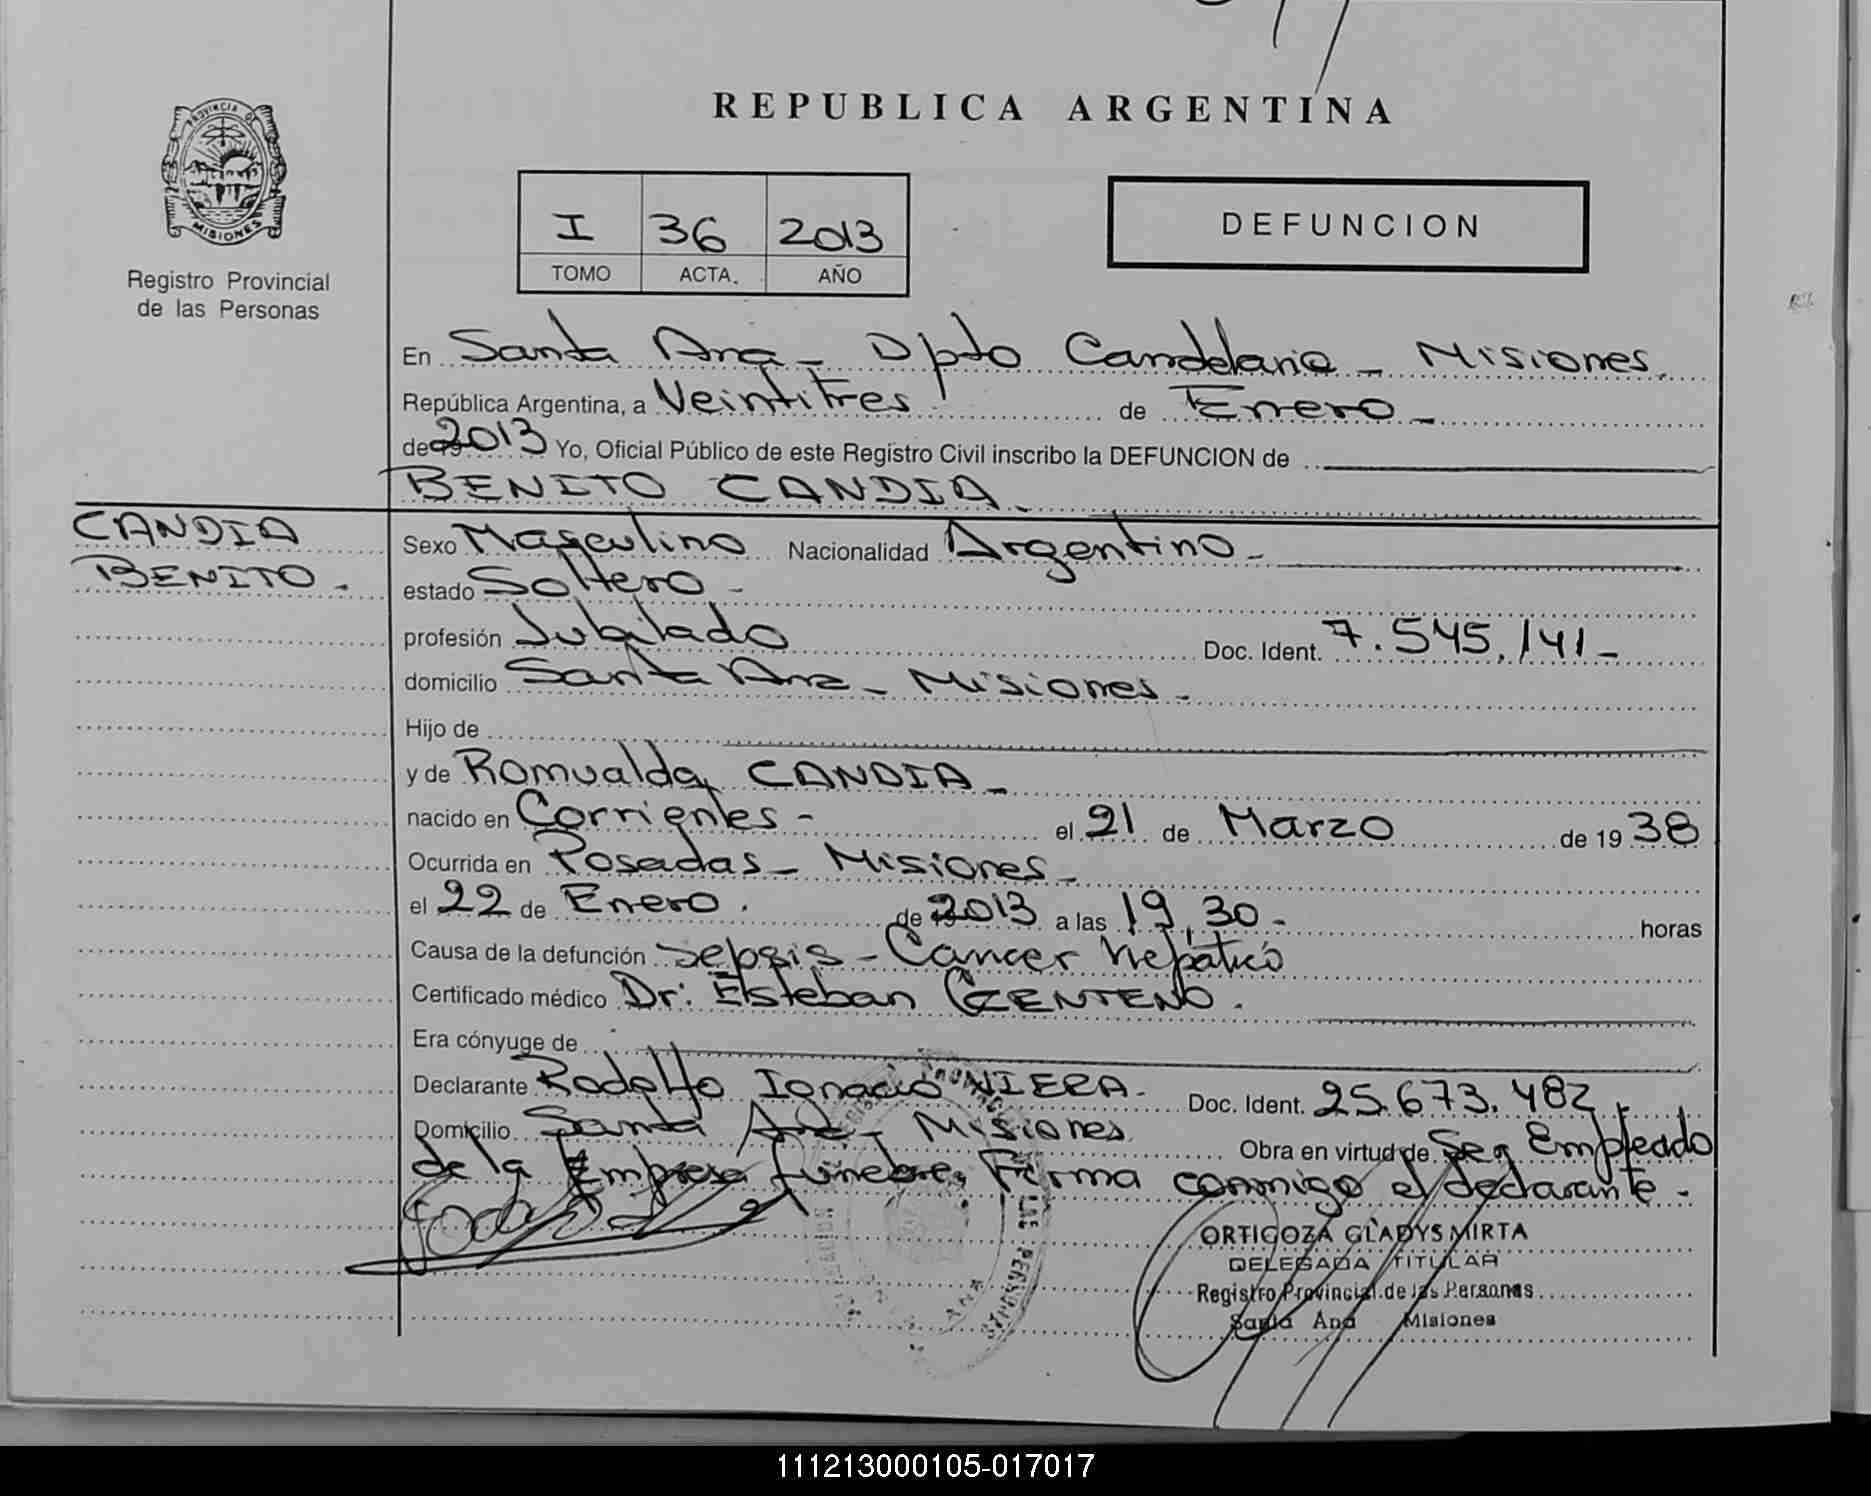 REPUBLICA ARGENTINA
PROVINCIA DE
MISIONES
Registro Provincial
de las Personas
I 36 2013
TOMO ACTA. AÑO
DEFUNCION
En Santa Ana - Dpto Candelaria - Misiones
República Argentina, a Veintitres de Enero -
de 2013 Yo, Oficial Público de este Registro Civil inscribo la DEFUNCION de
BENITO CANDIA
CANDIA
BENITO -
Sexo Masculino Nacionalidad Argentino -
estado Soltero -
profesión Jubilado Doc. Ident. 7.545.141 -
domicilio Santa Ana - Misiones -
Hijo de
y de Romualda CANDIA -
nacido en Corrientes - el 21 de Marzo de 19 38
Ocurrida en Posadas - Misiones -
el 22 de Enero . de 2013 a las 19,30 - horas
Causa de la defunción Sepsis - Cancer hepático
Certificado médico Dr: Esteban CENTENO .
Era cónyuge de
Declarante Rodolfo Ignacio Doc. Ident. 25.673.482
Domicilio Santa Ana - Misiones Obra en virtud de Ser Empleado
de la Empresa funebre. Firma conmigo el declarante -
ORTIGOZA GLADYS MIRTA
DELEGADA TITULAR
Registro Provincial de las Personas
Santa Ana Misiones
LAS PERSONAS
111213000105-017017